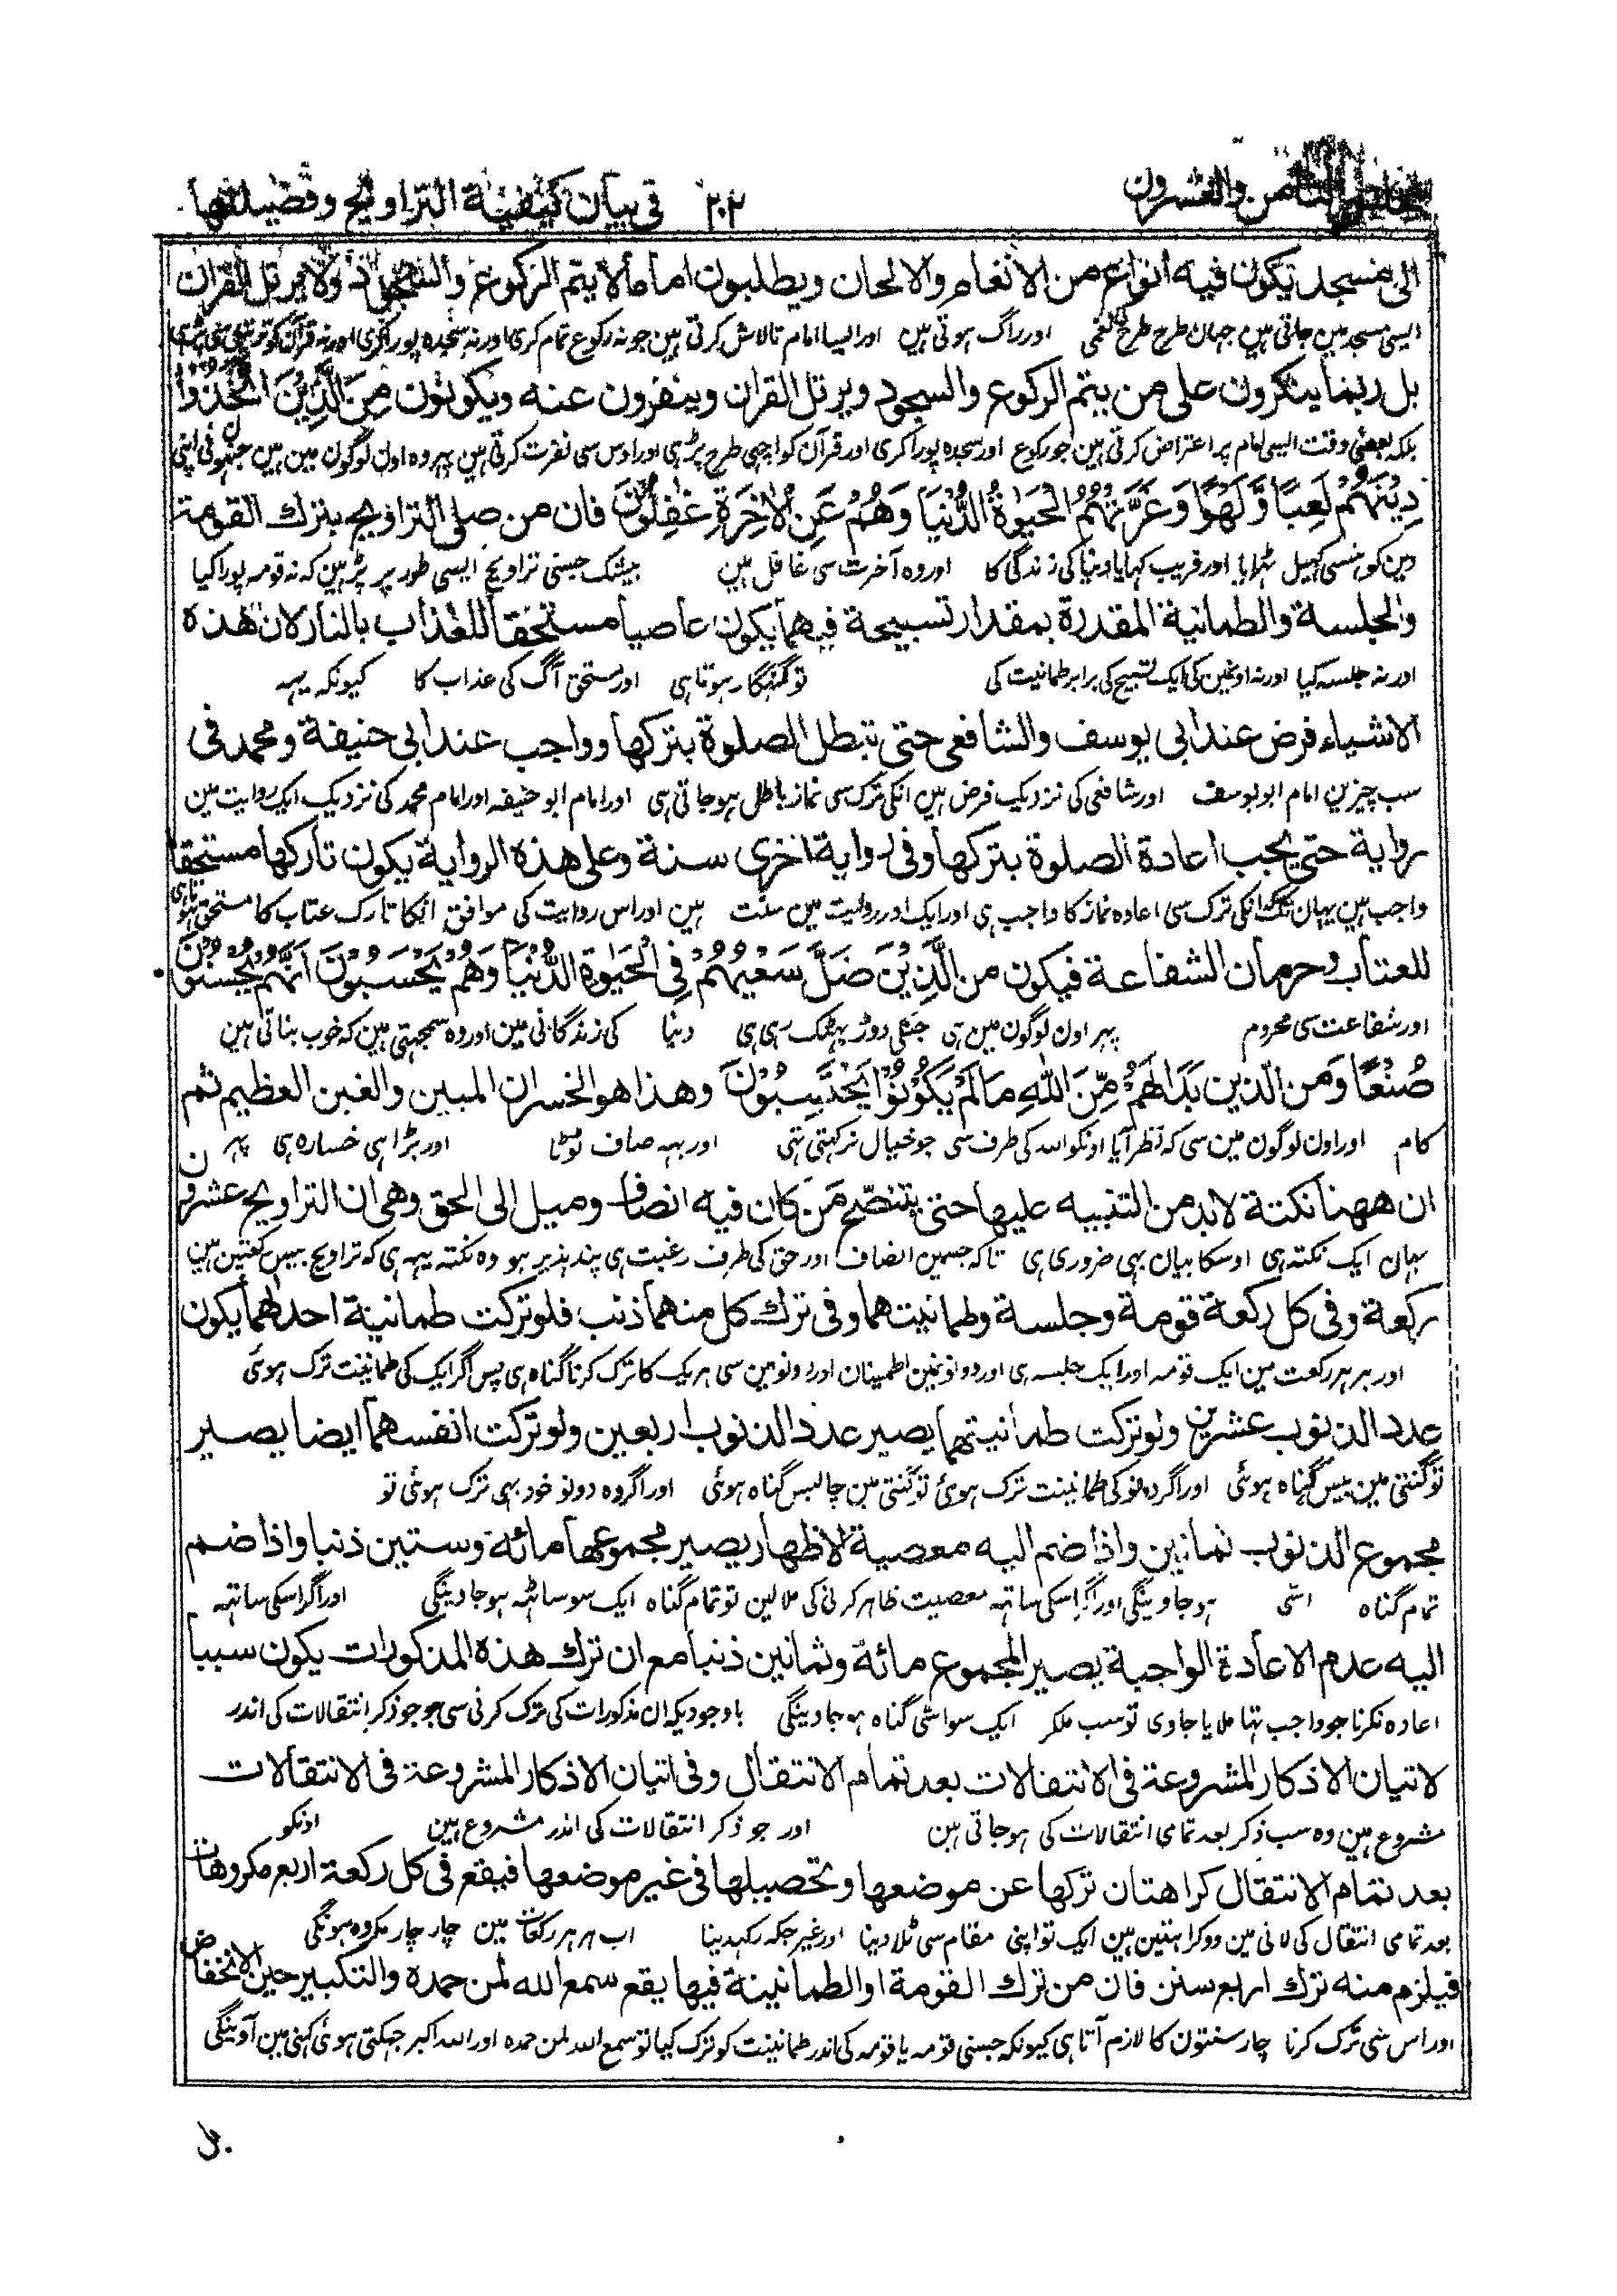 المجلس الثامن والعشرون ۲۰۲ فى بيان كيفية التراويح وفضيلتها
الى مسجد يكون فيه انواع من الانغام والالحان ويطلبون اماما لا يتم الركوع والسجود ولا يرتل القران
ايسى مسجد مين جاتى هين جهان طرح طرح كى نغمى اور راگ ہوتى ہين اور ايسا امام تلاش كرتى ہين جو نہ ركوع تمام كرى اور نہ سجدہ پورا كرى اور نہ قرآن كو ترتيل سى پڑہى
بل ربما ينكرون على من يتم الركوع والسجود ويرتل القران وينفرون عنه ويكونون مِنَ الَّذِيْنَ اتَّخَذُوْا
بلكہ بعضى وقت ايسى امام پر اعتراض كرتى ہين جو ركوع اور سجدہ پورا كرى اور قرآن كو اچہى طرح پڑہى اور اوس سى نفرت كرتى ہين پہر وہ اون لوگون مين ہين جنہون نى اپنى
دِيْنَهُمْ لَعِبًا وَّلَهْوًا وَغَرَّتْهُمُ الْحَيٰوةُ الدُّنْيَا وَهُمْ عَنِ الْاٰخِرَةِ غٰفِلُوْنَ فان من صلى التراويح بترك القومة
دين كو ہنسى كہيل ٹہرايا اور فريب كہايا دنيا كى زندگى كا اور وہ آخرت سى غافل ہين بيشك جسنى تراويح ايسى طور پر پڑہين كہ نہ قومہ پورا كيا
والجلسة والطمانية المقدرة بمقدار تسبيحة فيهما يكون عاصيا مستحقا للعذاب بالنار لان هذه
اور نہ جلسہ كيا اور نہ اونمين كى ايك تسبيح كى برابر طمانيت كى تو گنہگار ہوتا ہى اور مستحق آگ كى عذاب كا كيونكہ يہہ
الاشياء فرض عند ابى يوسف والشافعى حتى تبطل الصلوة بتركها وواجب عند ابى حنيفة ومحمد فى
سب چيزين امام ابويوسف اور شافعى كى نزديك فرض ہين انكى ترك سى نماز باطل ہو جاتى ہى اور امام ابو حنيفہ اور امام محمد كى نزديك ايك روايت مين
رواية حتى يجب اعادة الصلوة بتركها وفى رواية اخرى سنة وعلى هذه الرواية يكون تاركها مستحقا
واجب ہين يہان تك انكى ترك سى اعادہ نماز كا واجب ہى اور ايك اور روايت مين سنت ہين اور اس روايت كى موافق انكا تارك عتاب كا مستحق ہوتا ہى
للعتاب وحرمان الشفاعة فيكون من الَّذِيْنَ ضَلَّ سَعْيُهُمْ فِى الْحَيٰوةِ الدُّنْيَا وَهُمْ يَحْسَبُوْنَ اَنَّهُمْ يُحْسِنُوْنَ
اور شفاعت سى محروم پہر اون لوگون مين ہى جنكى دوڑ بہٹك رہى ہى دنيا كى زندگانى مين اور وہ سمجہتى ہين كہ خوب بناتى ہين
صُنْعًا وَمن الّذين بَدَا لَهُمْ مِّنَ اللّٰهِ مَا لَمْ يَكُوْنُوْا يَحْتَسِبُوْنَ وهذا هو الخسران المبين والغبن العظيم ثم
كام اور اون لوگون مين سى كہ نظر آيا اونكو اللہ كى طرف سى جو خيال نركہتى تہى اور يہہ صاف ٹوٹا اور بڑا ہى خسارہ ہى پہر
ان ههنا نكتة لابد من التنبيه عليها حتى يتنصّح مَن كان فيه انصاف وميل الى الحق وهى ان التراويح عشرون
يہان ايك نكتہ ہى اوسكا بيان بہى ضرورى ہى تاكہ جسمين انصاف اور حق كى طرف رغبت ہى پند پذير ہو وہ نكتہ يہہ ہى كہ تراويح بيس ركعتين ہين
ركعة وفى كل ركعة قومة وجلسة وطمانيتهما وفى ترك كل منهما ذنب فلو تركت طمانية احداهما يكون
اور ہر ہر ركعت مين ايك قومہ اور ايك جلسہ ہى اور دونونمين اطمينان اور دونومين سى ہريك كا ترك كرنا گناہ ہى پس اگر ايك كى طمانينت ترك ہوئى
عدد الذنوب عشرين ولو تركت طمانيتهما يصير عدد الذنوب اربعين ولو تركت انفسهما ايضا يصير
تو گنتى مين بيس گناہ ہوئى اور اگر دونو كى طمانينت ترك ہوئ تو گنتى مين چاليس گناہ ہوئى اور اگر وہ دونو خود بہى ترك ہوئى تو
مجموع الذنوب ثمانين واذا ضم اليه معصية الاظهار يصير مجموعها مائة وستين ذنبا واذا ضم
تمام گناہ اسّى ہو جاوينگى اور اگر اسكى ساتہہ معصيت ظاہر كرنى كى ملالين تو تمام گناہ ايك سو ساٹہہ ہو جاوينگى اور اگر اسكى ساتہہ
اليه عدم الاعادة الواجبة يصير المجموع مائة وثمانين ذنبا مع ان ترك هذه المذكورات يكون سببا
اعادہ نكرنا جو واجب تہا ملايا جاوى تو سب ملكر ايك سو اسّى گناہ ہو جاوينگى باوجوديكہ ان مذكورات كى ترك كرنى سى جو جو ذكر انتقالات كى اندر
لاتيان الاذكار المشروعة فى الانتقالات بعد تمام الانتقال وفى اتيان الاذكار المشروعة فى الانتقالات
مشروع ہين وہ سب ذكر بعد تمامى انتقالات كى ہو جاتى ہين اور جو ذكر انتقالات كى اندر مشروع ہين اونكو
بعد تمام الانتقال كراهتان تركها عن موضعها وتحصيلها فى غير موضعها فيقع فى كل ركعة اربع مكروهات
بعد تمامى انتقال كى لانى مين دو كراہتين ہين ايك تو اپنى مقام سى ٹلا دينا اور غير جگہ ركہدينا اب ہر ہر ركعات مين چار چار مكروہ ہونگى
فيلزم منه ترك اربع سنن فان من ترك القومة او الطمانينة فيها يقع سمع الله لمن حمده والتكبير حين الانخفاض
اور اس سى ترك كرنا چار سنتون كا لازم آتا ہى كيونكہ جسنى قومہ يا قومہ كى اندر طمانينت كو ترك كيا تو سمع اللہ لمن حمدہ اور اللہ اكبر جہكتى ہوئى كہنى مين آوينگى